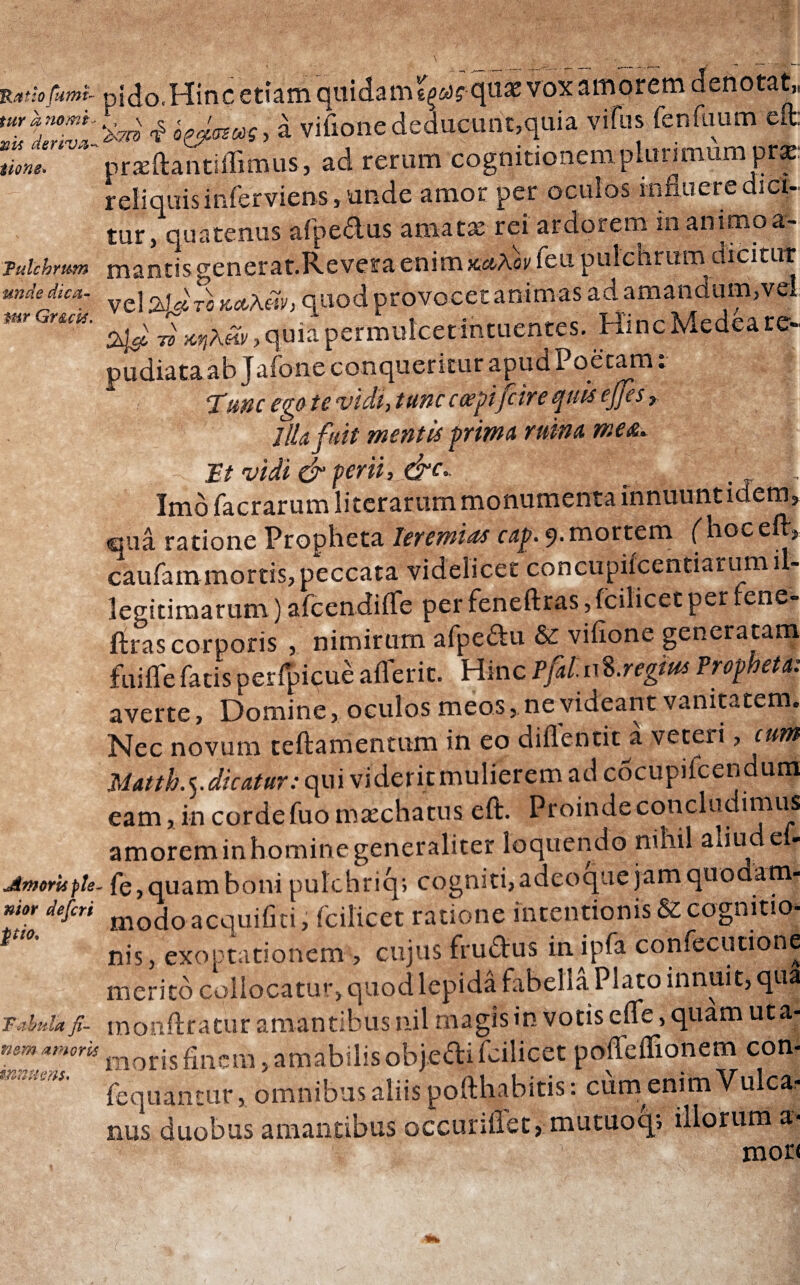 Ratio fumi- pido. Hinc etiam quidam ἔρως quæ vox amorem denotat,
tur à nomi- ἀπὸ τ̃ ὁράσεως, à visione deducunt, quia visus sensuum est
nis deriva- præstantissimus, ad rerum cognitionem plurimum præ
tione. reliquis inserviens, unde amor per oculos influere dici-
tur, quatenus aspectus amatæ rei ardorem in animo a-
Pulchrum mantis generat. Revera enim καλὸν seu pulchrum dicitur
unde dica- vel διὰ τὸ καλᾶν, quod provocet animas ad amandum, vel
tur Græcis. διὰ τὸ κηλᾶν, quia permulcet intuentes. Hinc Medea re-
pudiata ab Jasone conqueritur apud Poëtam:
Tunc ego te vidi, tunc cœpi scire quis esses,
Illa fuit mentis prima ruina meæ.
Et vidi & perii, &c.
Imò sacrarum literarum monumenta innuunt idem,
quâ ratione Propheta Ieremias cap. 9. mortem (hoc est,
causam mortis, peccata videlicet concupiscentiarum il-
legitimarum) ascendisse per fenestras, scilicet per fene-
stras corporis, nimirum aspectu & visione generatam
fuisse satis perspicuè asserit. Hinc Psal. 118. regius Propheta:
averte, Domine, oculos meos, ne videant vanitatem.
Nec novum testamentum in eo dissentit à veteri, cum
Matth. 5. dicatur: qui viderit mulierem ad cōcupiscendum
eam, in corde suo mæchatus est. Proinde concludimus
amorem in homine generaliter loquendo nihil aliud es-
Amoris ple- se, quam boni pulchriq; cogniti, adeoque jam quodam-
nior descri modo acquisiti, scilicet ratione intentionis & cognitio-
ptio. nis, exoptationem, cujus fructus in ipsa consecutione
meritò collocatur, quod lepidâ fabellâ Plato innuit, quâ
Fabula fi- monstratur amantibus nil magis in votis esse, quàm ut a-
nem amoris moris finem, amabilis objecti scilicet possessionem con-
innuens. sequantur, omnibus aliis posthabitis: cùm enim Vulca-
nus duobus amantibus occurisset, mutuoq; illorum a-
more